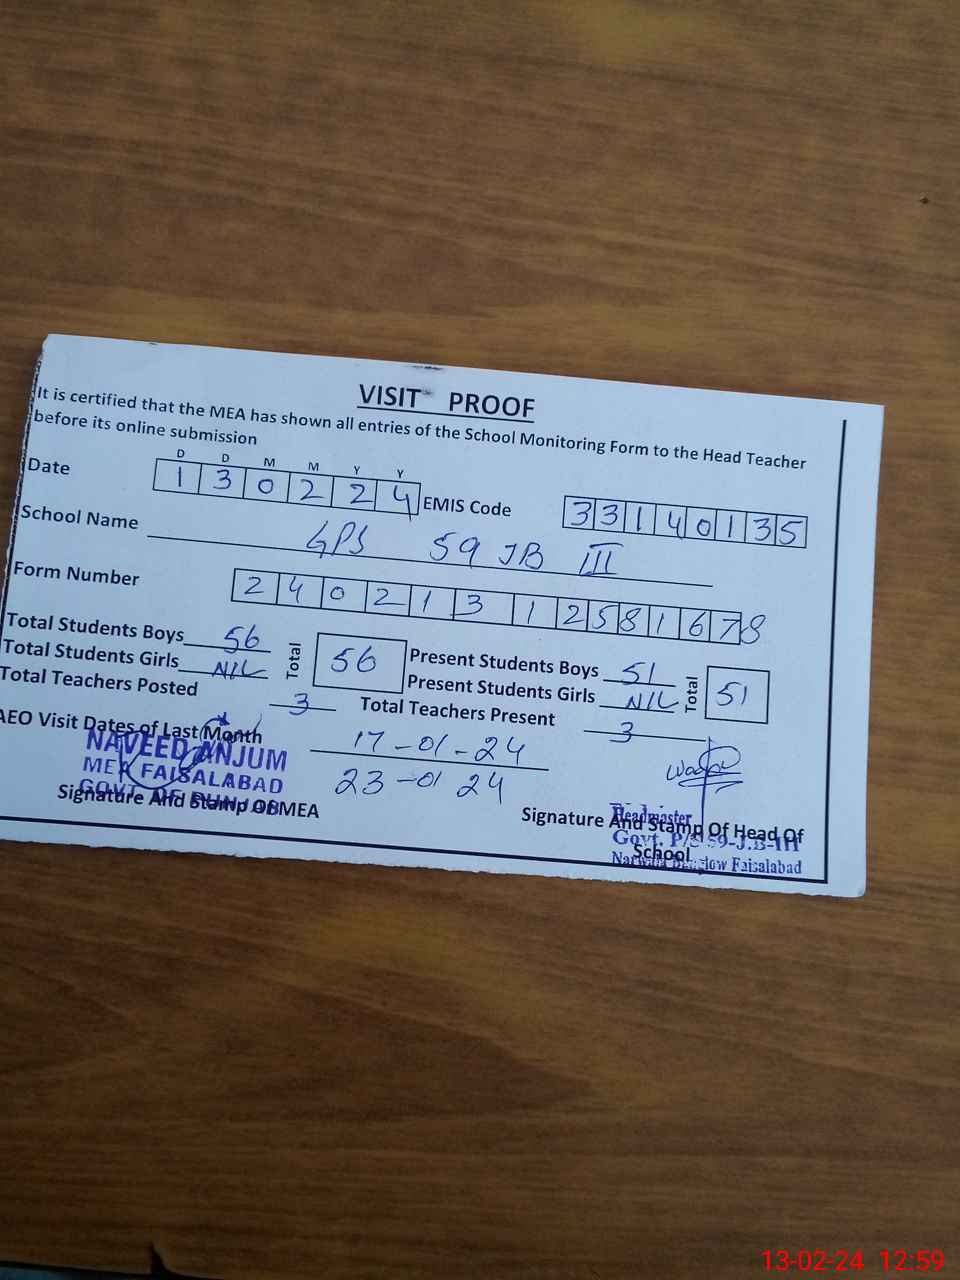 VISIT PROOF
It is certified that the MEA has shown all entries of the School Monitoring Form to the Head Teacher
before its online submission
D D M M Y Y
Date 1 3 0 2 2 4 EMIS Code 3 3 1 4 0 1 3 5
School Name GPS 59 JB III
Form Number 2 4 0 2 1 3 1 2 5 8 1 6 7 8
Total Students Boys 56 Total 56 Present Students Boys 51 Total 51
Total Students Girls NIL Present Students Girls NIL
Total Teachers Posted 3 Total Teachers Present 3
AEO Visit Dates of Last Month 17-01-24
23-01 24
NAVEED ANJUM
MEA FAISALABAD
GOVT. OF PUNJAB
Signature And Stamp Of MEA
Signature And Stamp Of Head Of
School
Headmaster
Govt. P/S 59-J.B-III
Faisalabad
13-02-24 12:59